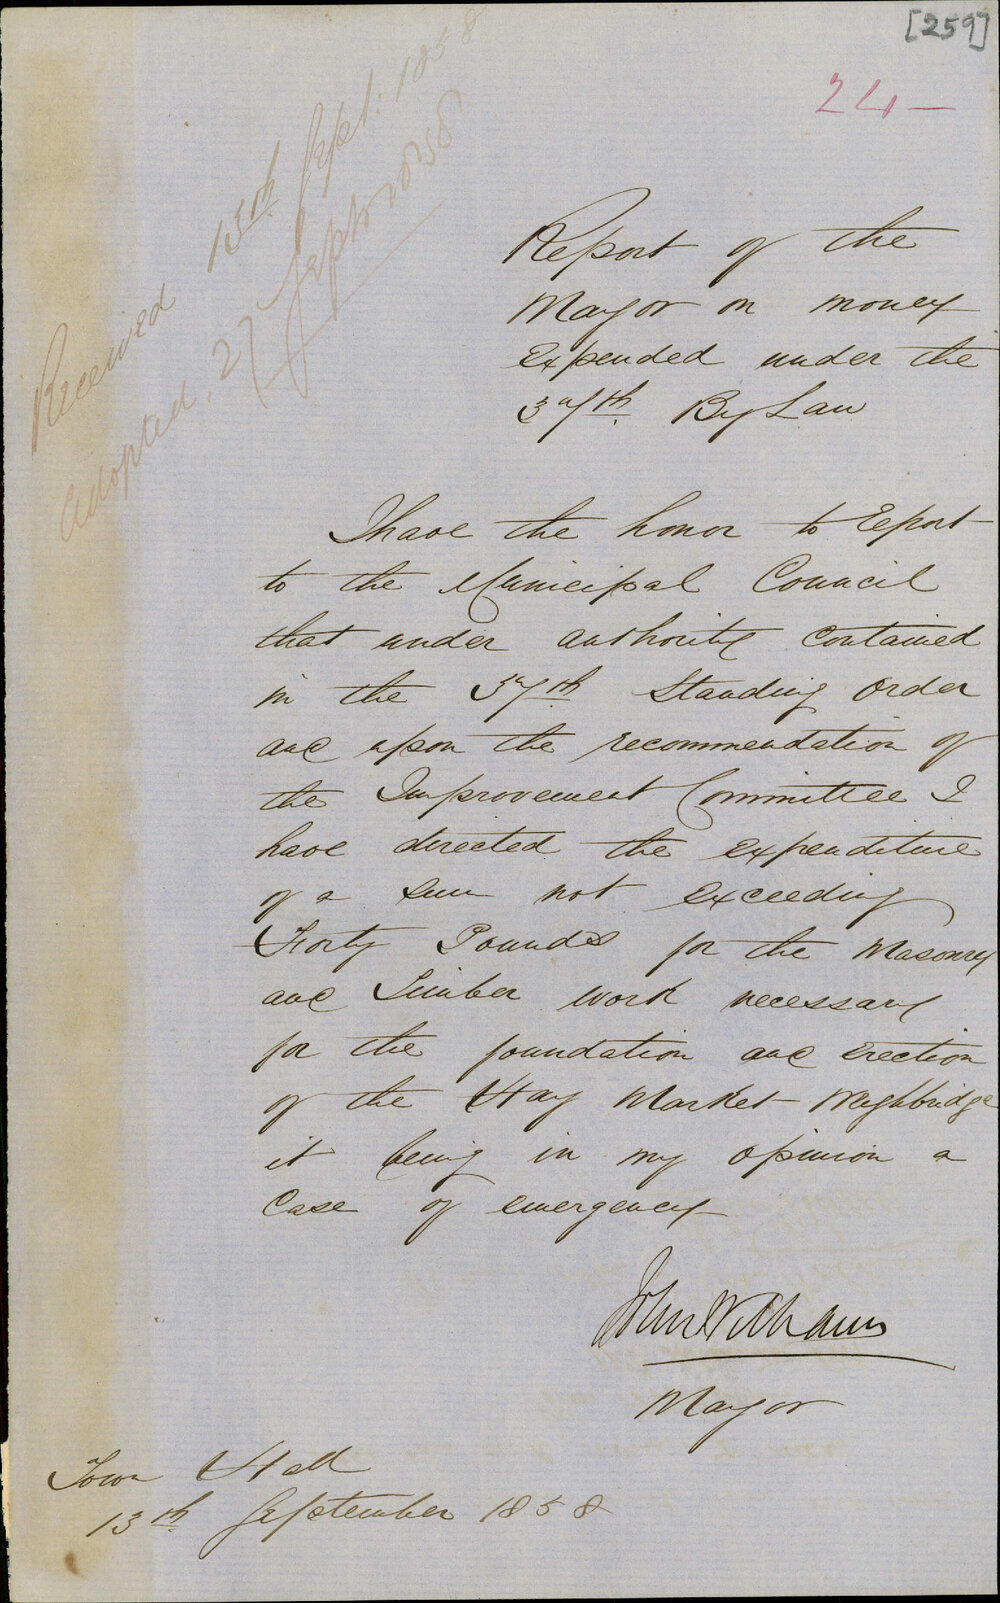 [259]
24-
Received 13th Sept. 1858
Adopted. 27 Septr 1858
Report of the
Mayor on money
Expended under the
37th By Law
I have the honor to Report
to the Municipal Council
that under authority contained
in the 37th Standing Order
and upon the recommendation of
the Improvement Committee I
have directed the expenditure
of a Sum not exceeding
Forty Pounds for the Masonry
and Timber work necessary
for the foundation and Erection
of the Hay Market Weighbridge
it being in my opinion a
Case of emergency
John Williams
Mayor
Town Hall
13th September 1858